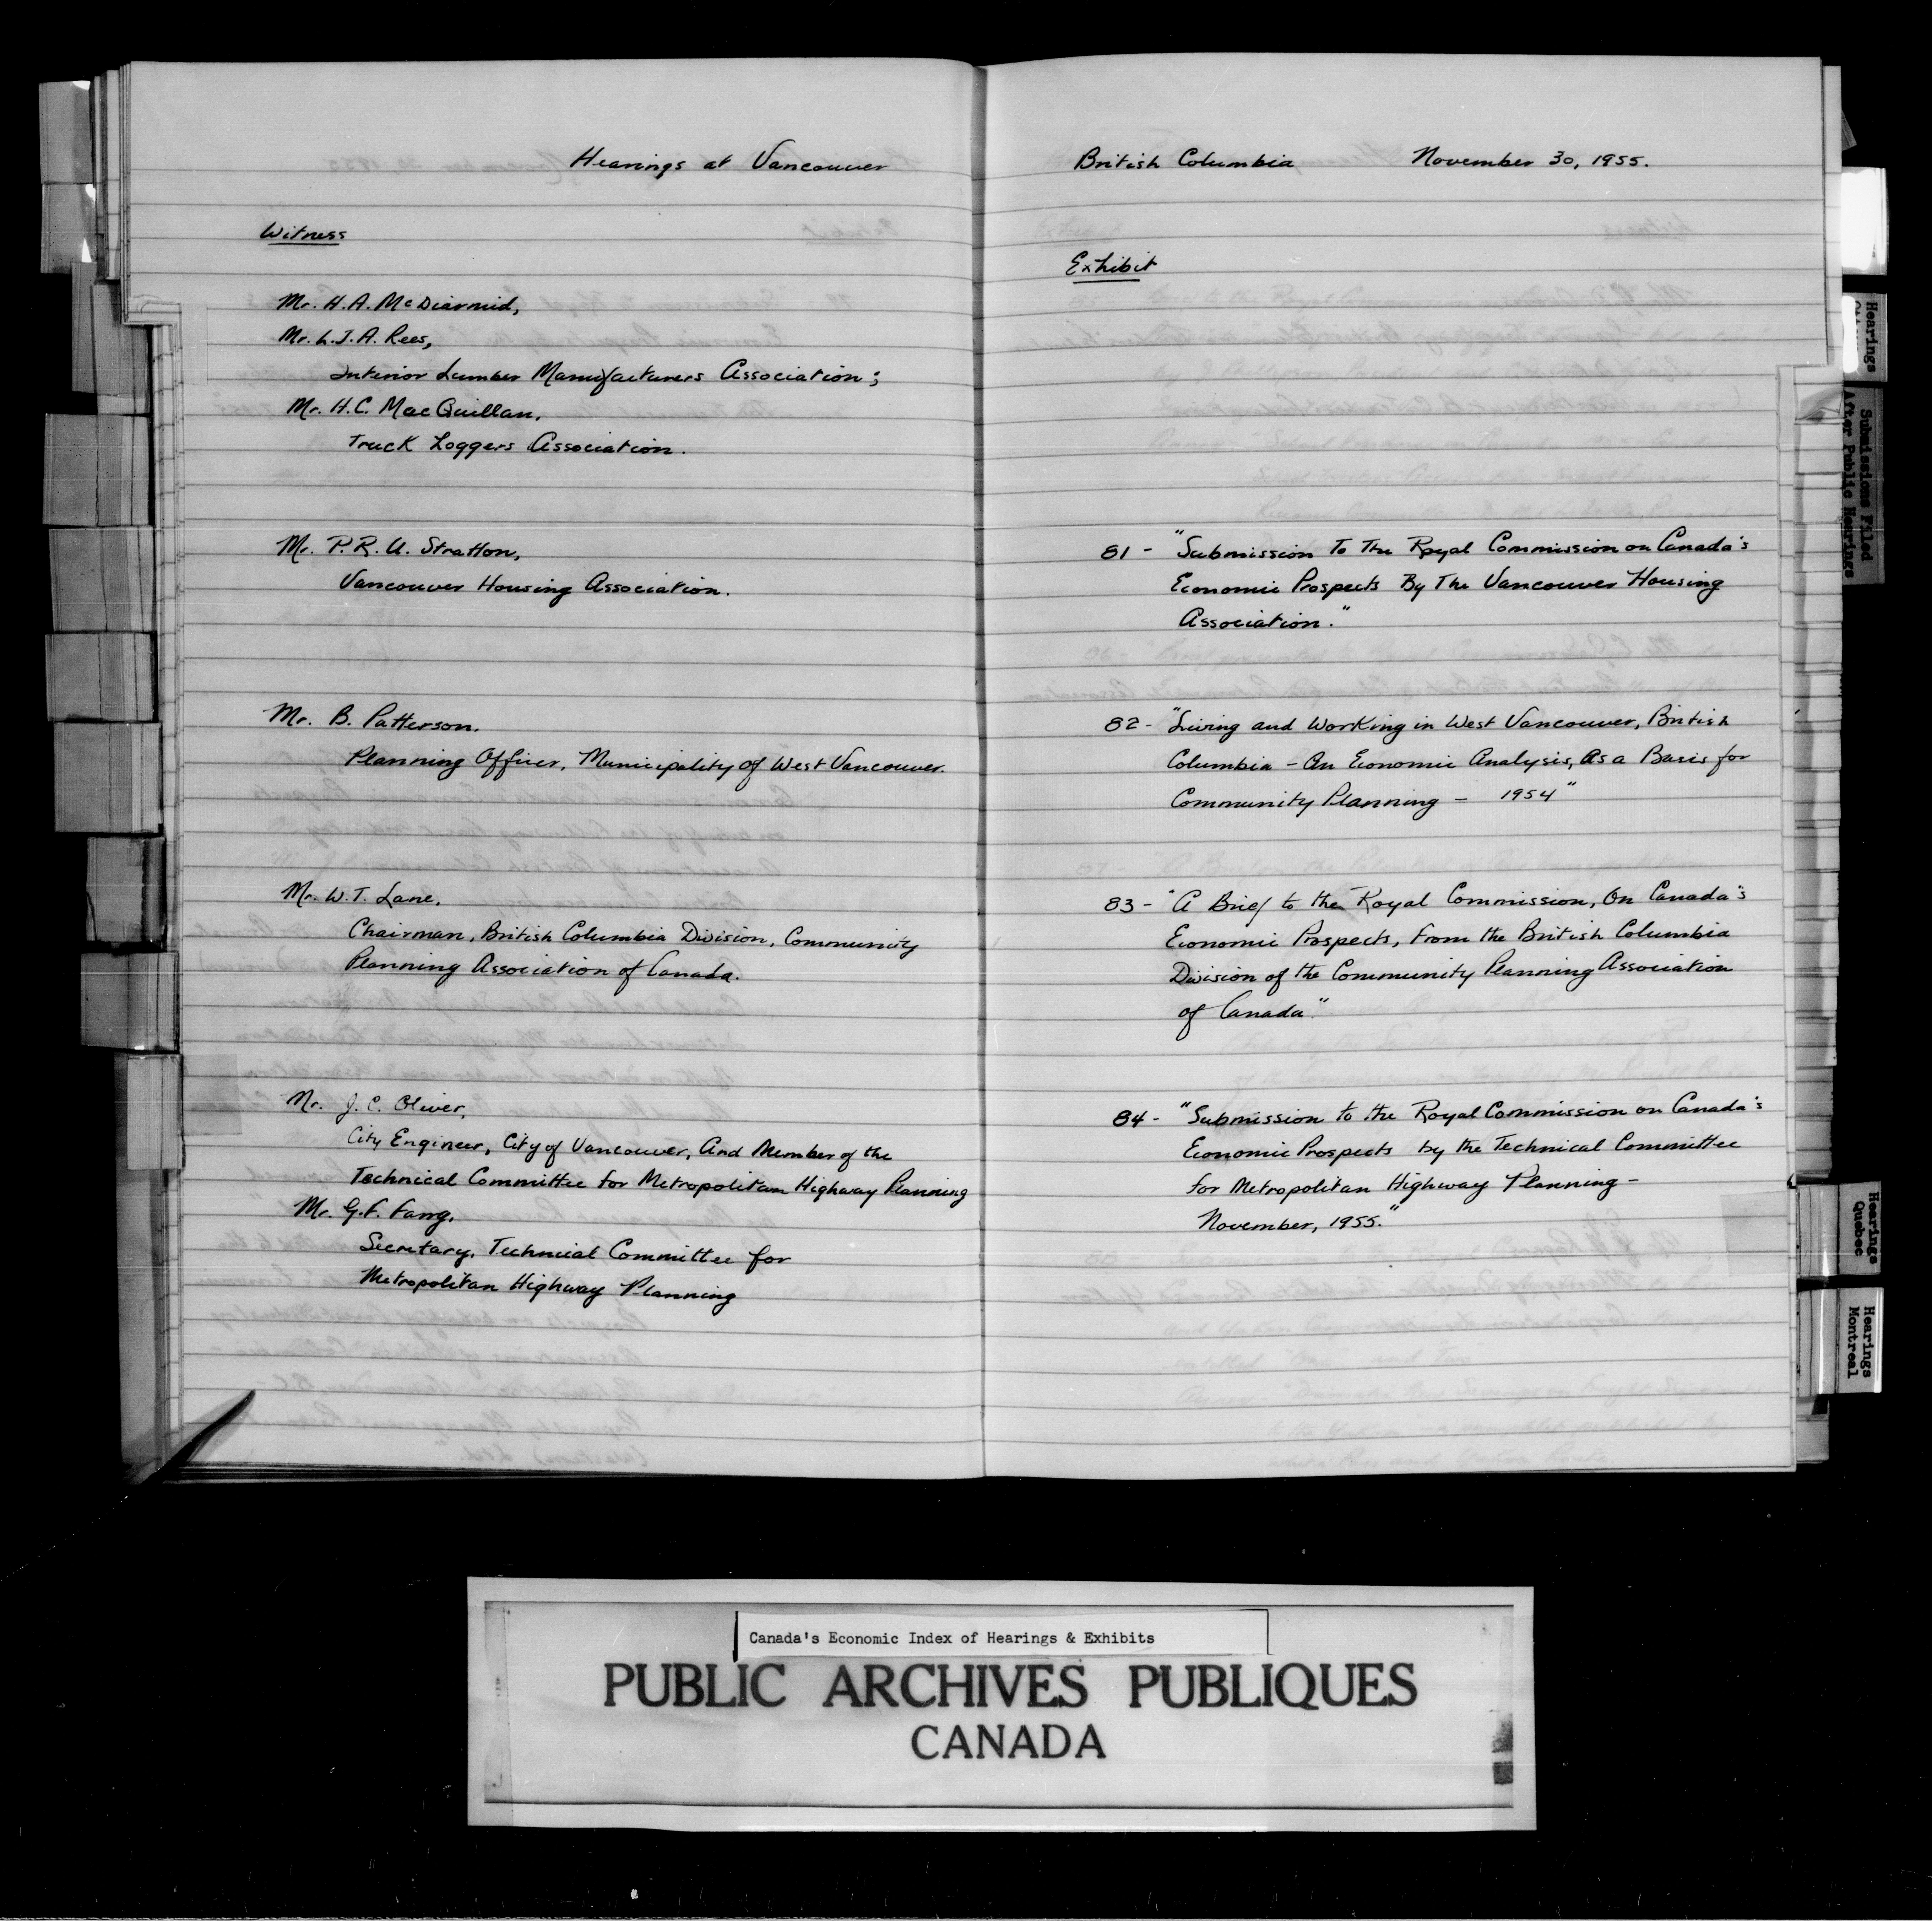 Hearings at Vancouver
Witness
Mr. H.A. McDiarmid,
Mr. L.J.A. Rees,
Interior Lumber Manufacturers Association;
Mr. H.C. MacQuillan,
Truck Loggers Association.
Mr. P.R.U. Stratton,
Vancouver Housing Association.
Mr. B. Patterson.
Planning Officer, Municipality of West Vancouver.
Mr. W.T. Lane,
Chairman, British Columbia Division, Community
Planning Association of Canada.
Mr. J.C. Oliver,
City Engineer, City of Vancouver, And Member of the
Technical Committee for Metropolitan Highway Planning
Mr. G.F. Fang,
Secretary, Technical Committee for
Metropolitan Highway Planning
British Columbia November 30, 1955.
Exhibit
81 - "Submission To The Royal Commission on Canada's
Economic Prospects By The Vancouver Housing
Association."
82 - "Living and Working in West Vancouver, British
Columbia - An Economic Analysis, As a Basis for
Community Planning - 1954"
83 - "A Brief to the Royal Commission, On Canada's
Economic Prospects, From the British Columbia
Division of the Community Planning Association
of Canada."
84 - "Submission to the Royal Commission on Canada's
Economic Prospects by the Technical Committee
for Metropolitan Highway Planning -
November, 1955."
Hearings
Submissions Filed
After Public Hearings
Hearings
Quebec
Hearings
Montreal
Canada's Economic Index of Hearings & Exhibits
PUBLIC ARCHIVES PUBLIQUES
CANADA